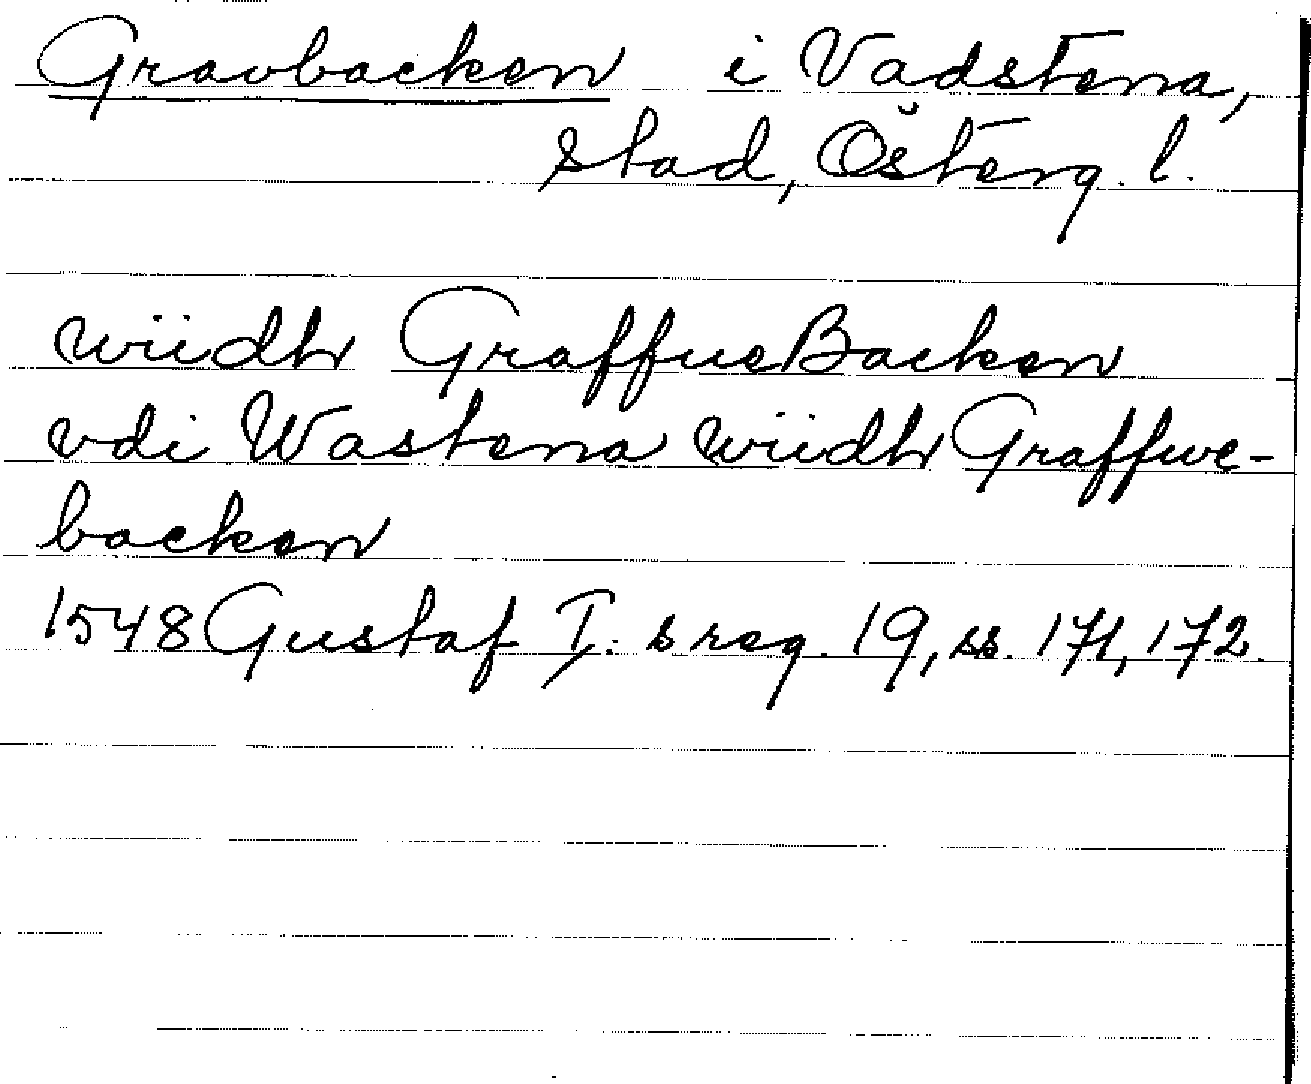 Gravbacken i Vadstena,
stad, Österg. l.
wiidh GraffueBacken
vdi Wastena wiidh Graffwe-
backen
1548 Gustaf I: s reg. 19, ss. 171, 172.